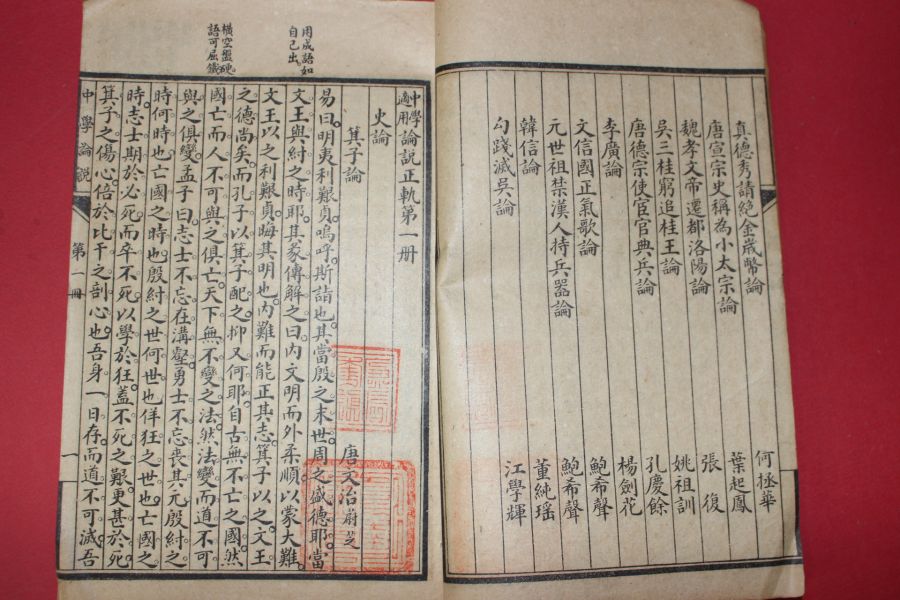 真德秀請絕金歲幣論 何拯華
唐宣宗史稱為小太宗論 葉起鳳
魏孝文帝遷都洛陽論 張復
吳三桂窮追桂王論 姚祖訓
唐德宗使宦官典兵論 孔慶餘
李廣論 楊劍花
文信國正氣歌論 鮑希聲
元世祖禁漢人持兵器論 鮑希聲
韓信論 董純瑶
勾踐滅吳論 江學輝
用成語如
自己出。
橫空盤硬
語可屈鐵。
中學適用論說正軌第一冊
史論
箕子論 唐文治蔚芝
易曰。明夷利艱貞。嗚呼。斯詣也。其當殷之末世。周之盛德耶。當
文王與紂之時耶。其彖傳解之曰。內文明而外柔順。以蒙大難。
文王以之。利艱貞。晦其明也。內難而能正其志。箕子以之。文王
之德尚矣。而孔子以箕子配之。抑又何耶。自古無不亡之國。然
國亡而人不可與之俱亡。天下無不變之法。然法變而道不可
與之俱變。孟子曰。志士不忘在溝壑。勇士不忘喪其元。殷紂之
時。何時也。亡國之時也。殷紂之世。何世也。佯狂之世也。亡國之
時。志士期於必死。而卒不死。以學於狂。蓋不死之艱。更甚於死。
箕子之傷心。倍於比干之剖心也。吾身一日存。而道不可滅。吾
中學論說 第一冊 一